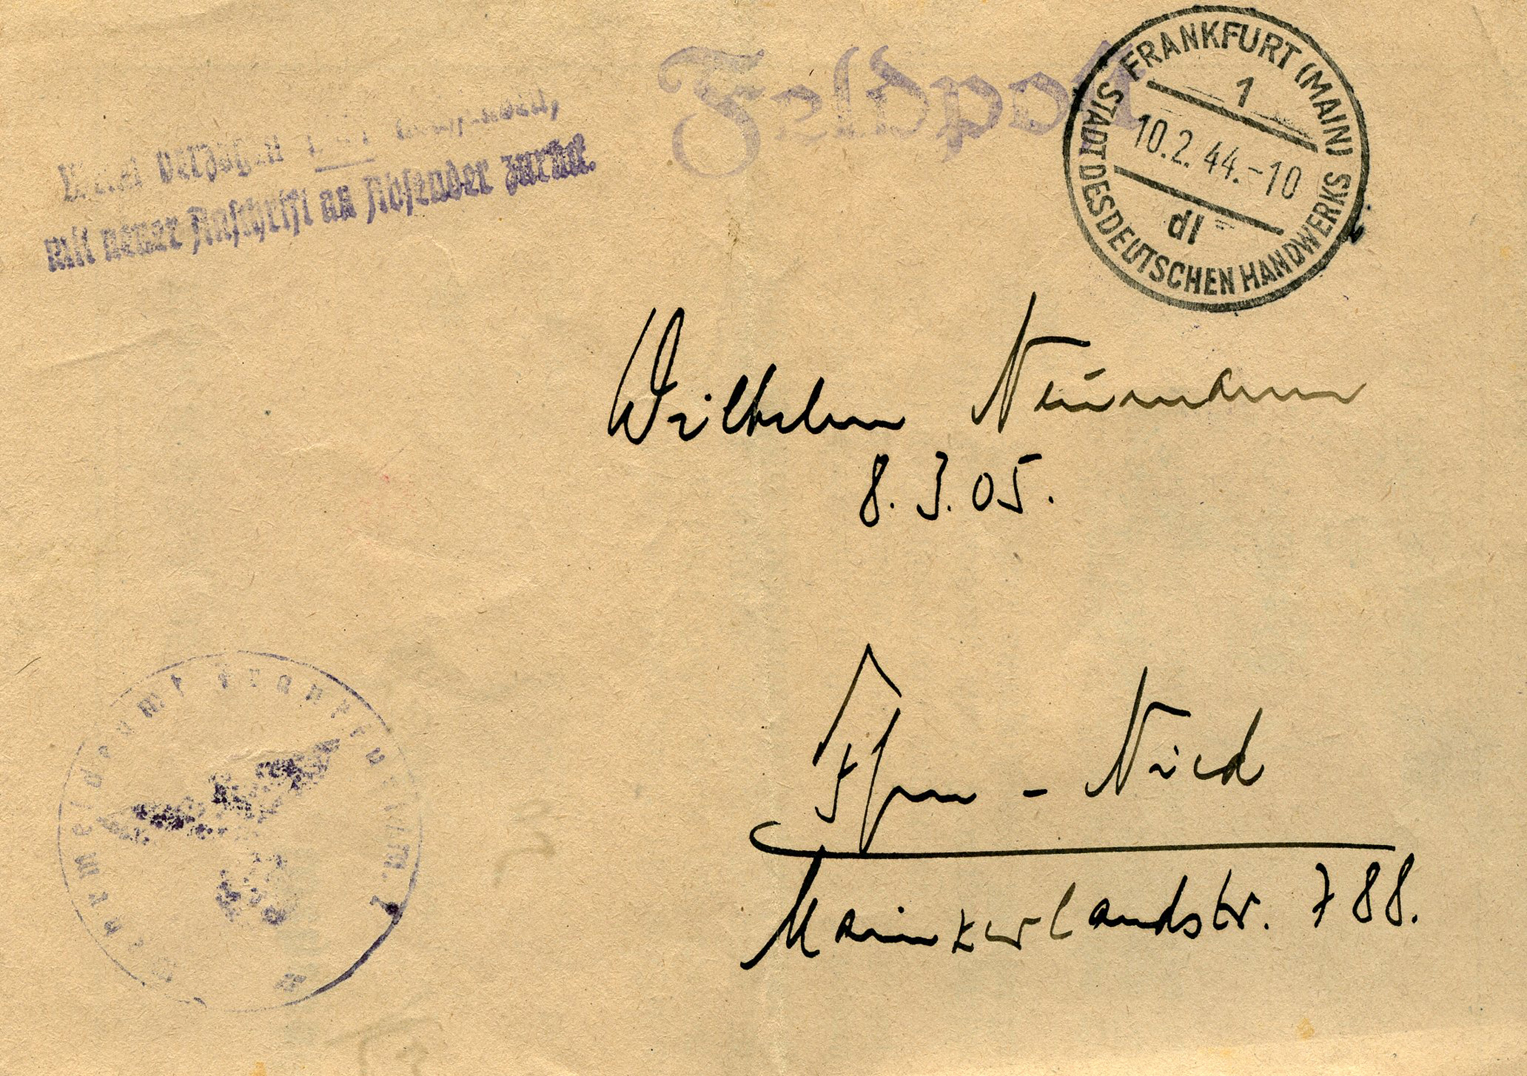 Feldpost
FRANKFURT (MAIN)
1
10.2.44.-10
dl
STADT DES DEUTSCHEN HANDWERKS
verzogen
mit neuer Anschrift an Absender zurück.
Wilhelm Neumann
8.3.05.
Ffm - Nied
Mainzerlandstr. 788.
Wehrmeldeamt Frankfurt